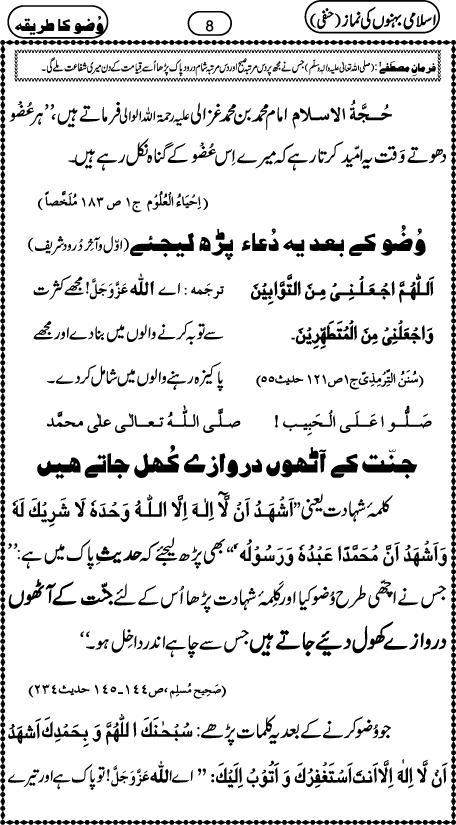 اسلامی بہنوں کی نماز (حنفی) 8 وُضو کا طریقہ
فرمانِ مصطفٰے: (صلی اللہ تعالیٰ علیہ والہٖ وسلم) جس نے مجھ پر دس مرتبہ صبح اور دس مرتبہ شام درود پاک پڑھا اُسے قیامت کے دن میری شفاعت ملے گی۔
حُجَّةُ الاسلام امام محمد بن محمد غزالی علیہ رحمۃ اللہ الوالی فرماتے ہیں، ’’ہر عُضْو
دھوتے وَقت یہ امّید کرتا رہے کہ میرے اِس عُضْو کے گناہ نکل رہے ہیں۔
(اِحیَاءُ الْعُلُوْم ج۱ ص ۱۸۳ مُلَخَّصاً)
وُضُو کے بعد یہ دُعاء پڑھ لیجئے (اوّل و آخر دُرود شریف)
اَللّٰهُمَّ اجْعَلْنِیْ مِنَ التَّوَّابِیْنَ ترجَمہ : اے اللہ عَزَّوَجَلَّ! مجھے کثرت
وَاجْعَلْنِیْ مِنَ الْمُتَطَهِّرِیْنَ۔ سے توبہ کرنے والوں میں بنا دے اور مجھے
(سُنَنُ التِّرْمِذِیّ ج۱ ص ۱۲۱ حدیث ۵۵) پاکیزہ رہنے والوں میں شامل کر دے۔
صَلُّوا عَلَی الْحَبِیب ! صلَّی اللّٰہُ تعالٰی علٰی محمَّد
جنّت کے آٹھوں دروازے کُھل جاتے ھیں
کلمۂ شہادت یعنی ’’اَشْهَدُ اَنْ لَّا اِلٰهَ اِلَّا اللّٰهُ وَحْدَهٗ لَا شَرِیْكَ لَهٗ
وَاَشْهَدُ اَنَّ مُحَمَّدًا عَبْدُهٗ وَرَسُوْلُهٗ‘‘ بھی پڑھ لیجئے کہ حدیثِ پاک میں ہے: ’’
جس نے اچّھی طرح وُضو کیا اور کَلِمۂ شہادت پڑھا اُس کے لئے جنّت کے آٹھوں
دروازے کھول دیئے جاتے ہیں جس سے چاہے اندر داخِل ہو۔‘‘
(صَحِیح مُسلِم ،ص۱۴۴۔۱۴۵ حدیث ۲۳۴)
جو وُضو کرنے کے بعد یہ کلمات پڑھے: سُبْحٰنَكَ اللّٰهُمَّ وَ بِحَمْدِكَ اَشْهَدُ
اَنْ لَّا اِلٰهَ اِلَّا اَنْتَ اَسْتَغْفِرُكَ وَ اَتُوْبُ اِلَیْكَ: ’’اے اللہ عَزَّوَجَلَّ! تو پاک ہے اور تیرے